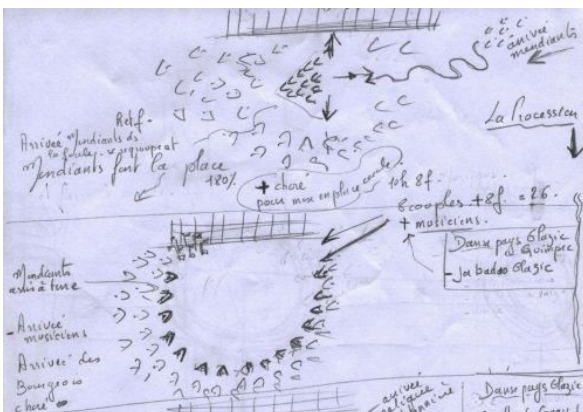 arrivée
mendiants
La Procession
Retif.
Arrivée Mendiants ds
la foule - se regroupent
Mendiants font la place
+ 80%
+ choré
pour mise en place cercle.
10h 8f.
8 couples + 8f. = 26.
+ musiciens.
Danse pays Glazic
Quimper
- Jabadao Glazic
Mendiants
assis à terre
- Arrivée
musiciens
Arrivée des
Bourgeois
choré
arrivée
Danse pays Glazic